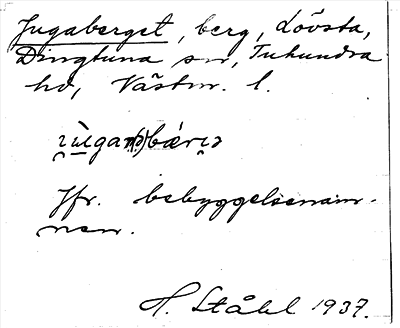 Jugaberget, berg, Lövsta,
Dingtuna sn, Tuhundra
hd, Västm. l.
Jfr. bebyggelsenam-
nen.
H. Ståhl 1937.